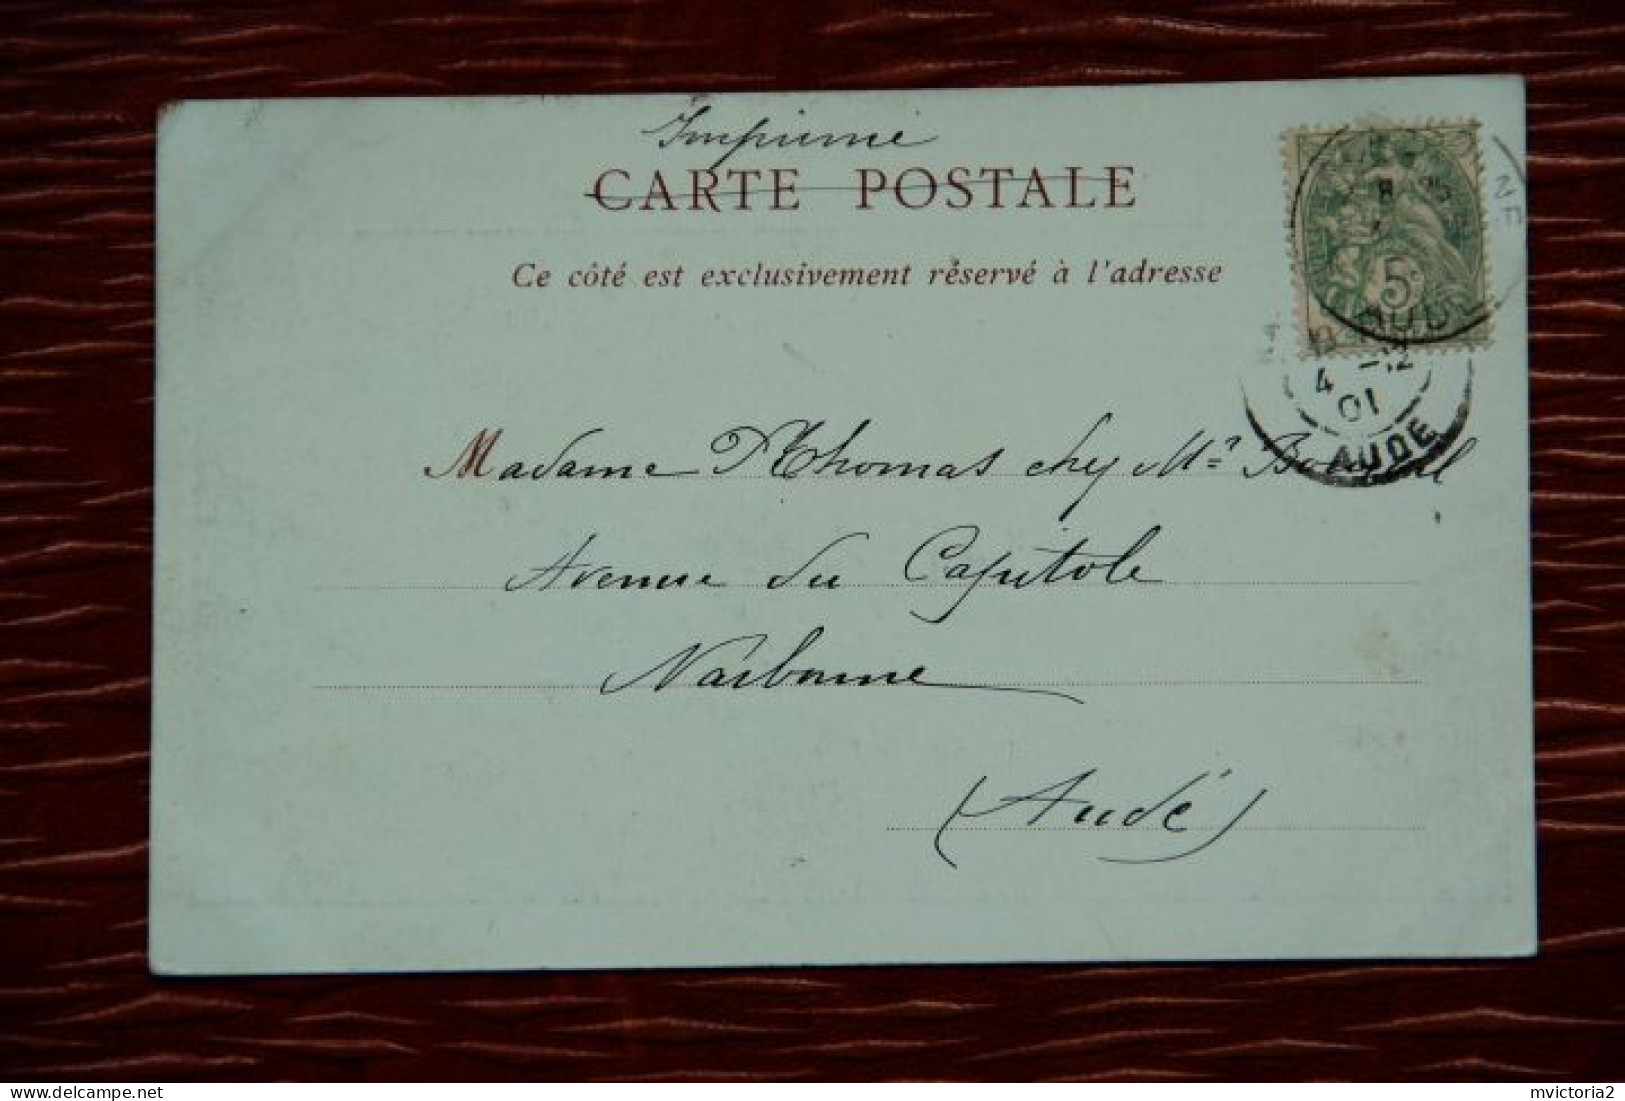 Imprimé
CARTE POSTALE
Ce côté est exclusivement réservé à l'adresse
5c
AUDE
4 -12
01
AUDE
Madame Thomas chez Mr
Avenue du Capitole
Narbonne
(Aude)
mvictoria2